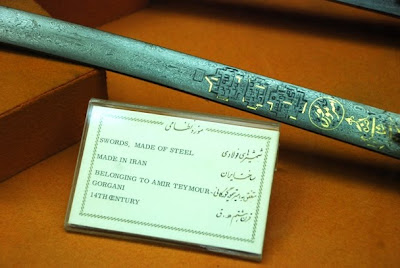 موزه نظامی
SWORDS, MADE OF STEEL
شمشیرهای فولادی
MADE IN IRAN
ساخت ایران
BELONGING TO AMIR TEYMOUR-
GORGANI
متعلق به امیر تیمور گورکانی
14TH CENTURY